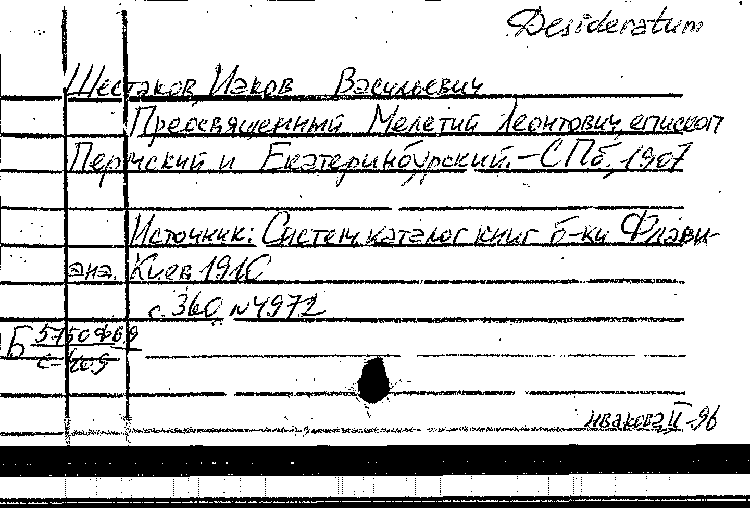 Desideratum
Шестаков, Иаков Васильевич
Преосвященный Мелетий Леонтович, епископ
Пермский и Екатеринбурский. – СПб, 1907
Источник: Систем. каталог книг б-ки Флави-
ана. Киев 1910
с. 360 № 4972
Б 5750ф69
ивакова, II-96